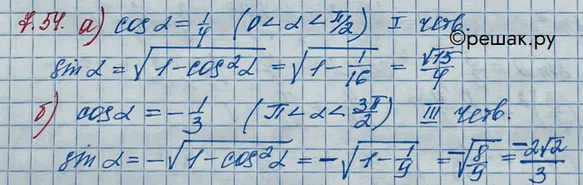 7.54. а) cos α = 1/4 (0 < α < π/2) I четв.
©reшак.ру
sin α = √(1 - cos²α) = √(1 - 1/16) = √15/4
б) cos α = -1/3 (π < α < 3π/2) III четв.
sin α = -√(1 - cos²α) = -√(1 - 1/9) = -√(8/9) = -2√2/3